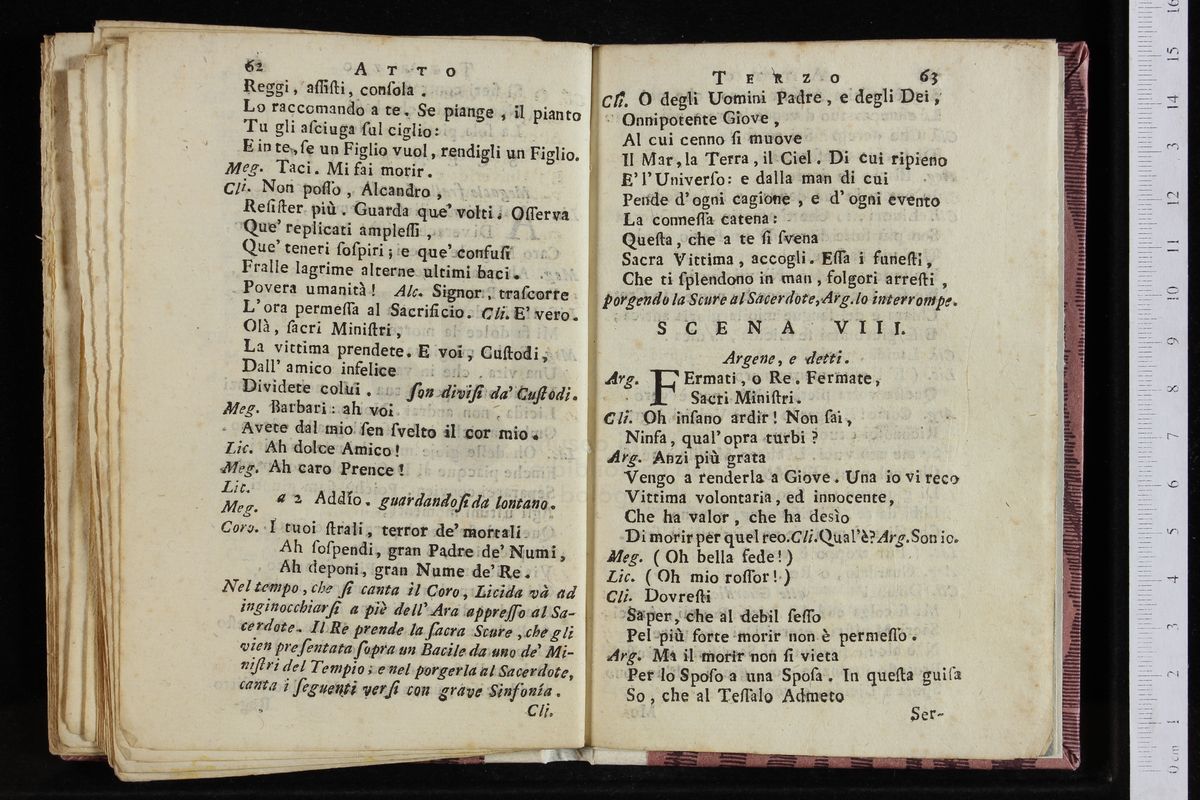 62 ATTO
Reggi, assisti, consola.
Lo raccomando a te. Se piange, il pianto
Tu gli asciuga sul ciglio:
E in te, se un Figlio vuol, rendigli un Figlio.
Meg. Taci. Mi fai morir.
Cli. Non posso, Alcandro,
Resister più. Guarda que' volti. Osserva
Que' replicati amplessi,
Que' teneri sospiri; e que' confusi
Fralle lagrime alterne ultimi baci.
Povera umanità! Alc. Signor, trascorre
L'ora permessa al Sacrificio. Cli. E' vero.
Olà, sacri Ministri,
La vittima prendete. E voi, Custodi,
Dall' amico infelice
Dividete colui. son divisi da' Custodi.
Meg. Barbari: ah voi
Avete dal mio sen svelto il cor mio.
Lic. Ah dolce Amico!
Meg. Ah caro Prence!
Lic.
Meg. a 2 Addìo. guardandosi da lontano.
Coro. I tuoi strali, terror de' mortali
Ah sospendi, gran Padre de' Numi,
Ah deponi, gran Nume de' Re.
Nel tempo, che si canta il Coro, Licida và ad
inginocchiarsi a piè dell' Ara appresso al Sa-
cerdote. Il Re prende la sacra Scure, che gli
vien presentata sopra un Bacile da uno de' Mi-
nistri del Tempio; e nel porgerla al Sacerdote,
canta i seguenti versi con grave Sinfonía.
Cli.
TERZO 63
Cli. O degli Uomini Padre, e degli Dei,
Onnipotente Giove,
Al cui cenno si muove
Il Mar, la Terra, il Ciel. Di cui ripieno
E' l' Universo: e dalla man di cui
Pende d' ogni cagione, e d' ogni evento
La connessa catena:
Questa, che a te si svena
Sacra Vittima, accogli. Essa i funesti,
Che ti splendono in man, folgori arresti,
porgendo la Scure al Sacerdote, Arg. lo interrompe.
SCENA VIII.
Argene, e detti.
Arg. FErmati, o Re. Fermate,
Sacri Ministri.
Cli. Oh insano ardir! Non sai,
Ninfa, qual' opra turbi?
Arg. Anzi più grata
Vengo a renderla a Giove. Una io vi reco
Vittima volontaria, ed innocente,
Che ha valor, che ha desìo
Di morir per quel reo. Cli. Qual'è? Arg. Son io.
Meg. (Oh bella fede!)
Lic. (Oh mio rossor!)
Cli. Dovresti
Saper, che al debil sesso
Pel più forte morir non è permesso.
Arg. Ma il morir non si vieta
Per lo Sposo a una Sposa. In questa guisa
So, che al Tessalo Admeto
Ser-
0 cm 1 2 3 4 5 6 7 8 9 10 11 12 13 14 15 16